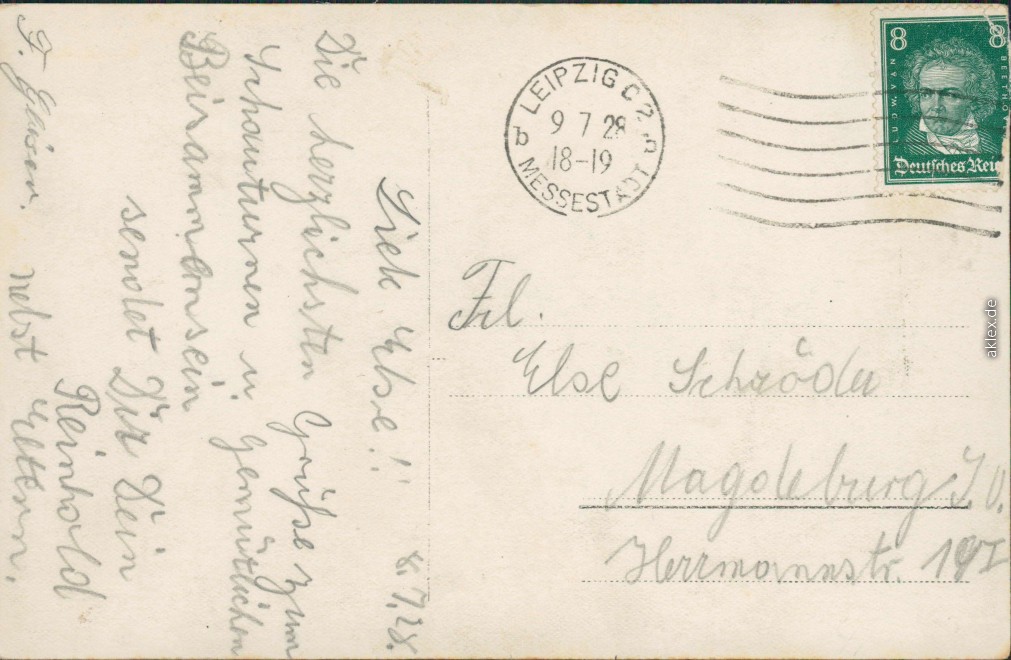 8.7.28.
Liek Else!!
Die herzlichsten Grüße zum
Schauturnen u. gemütlichen
Beirammensein
sendet Dir Dein
Reinhold
nebst Eltern.
LEIPZIG C 2
b
9 7 28
18-19
MESSESTADT
8 8
LUDW. VAN BEETHOVEN
Deutsches Reich
Frl.
Else Schröder
Magdeburg
Herrmannstr. 19
aklex.de